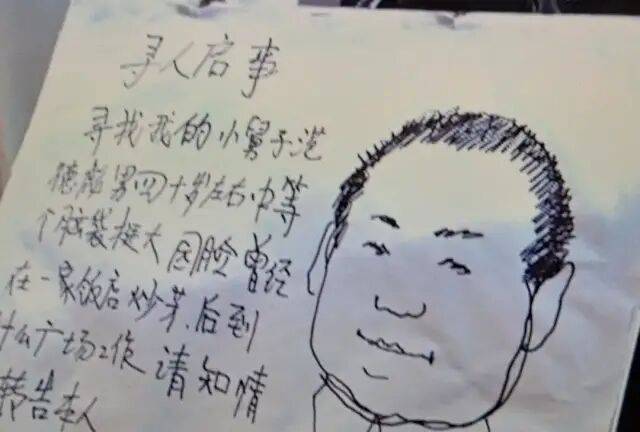 寻人启事
寻找我的小舅子范
德彪男四十岁左右中等
个脑袋挺大园脸曾经
在一家饭店炒菜.后到
什么广场工作请知情
者告本人